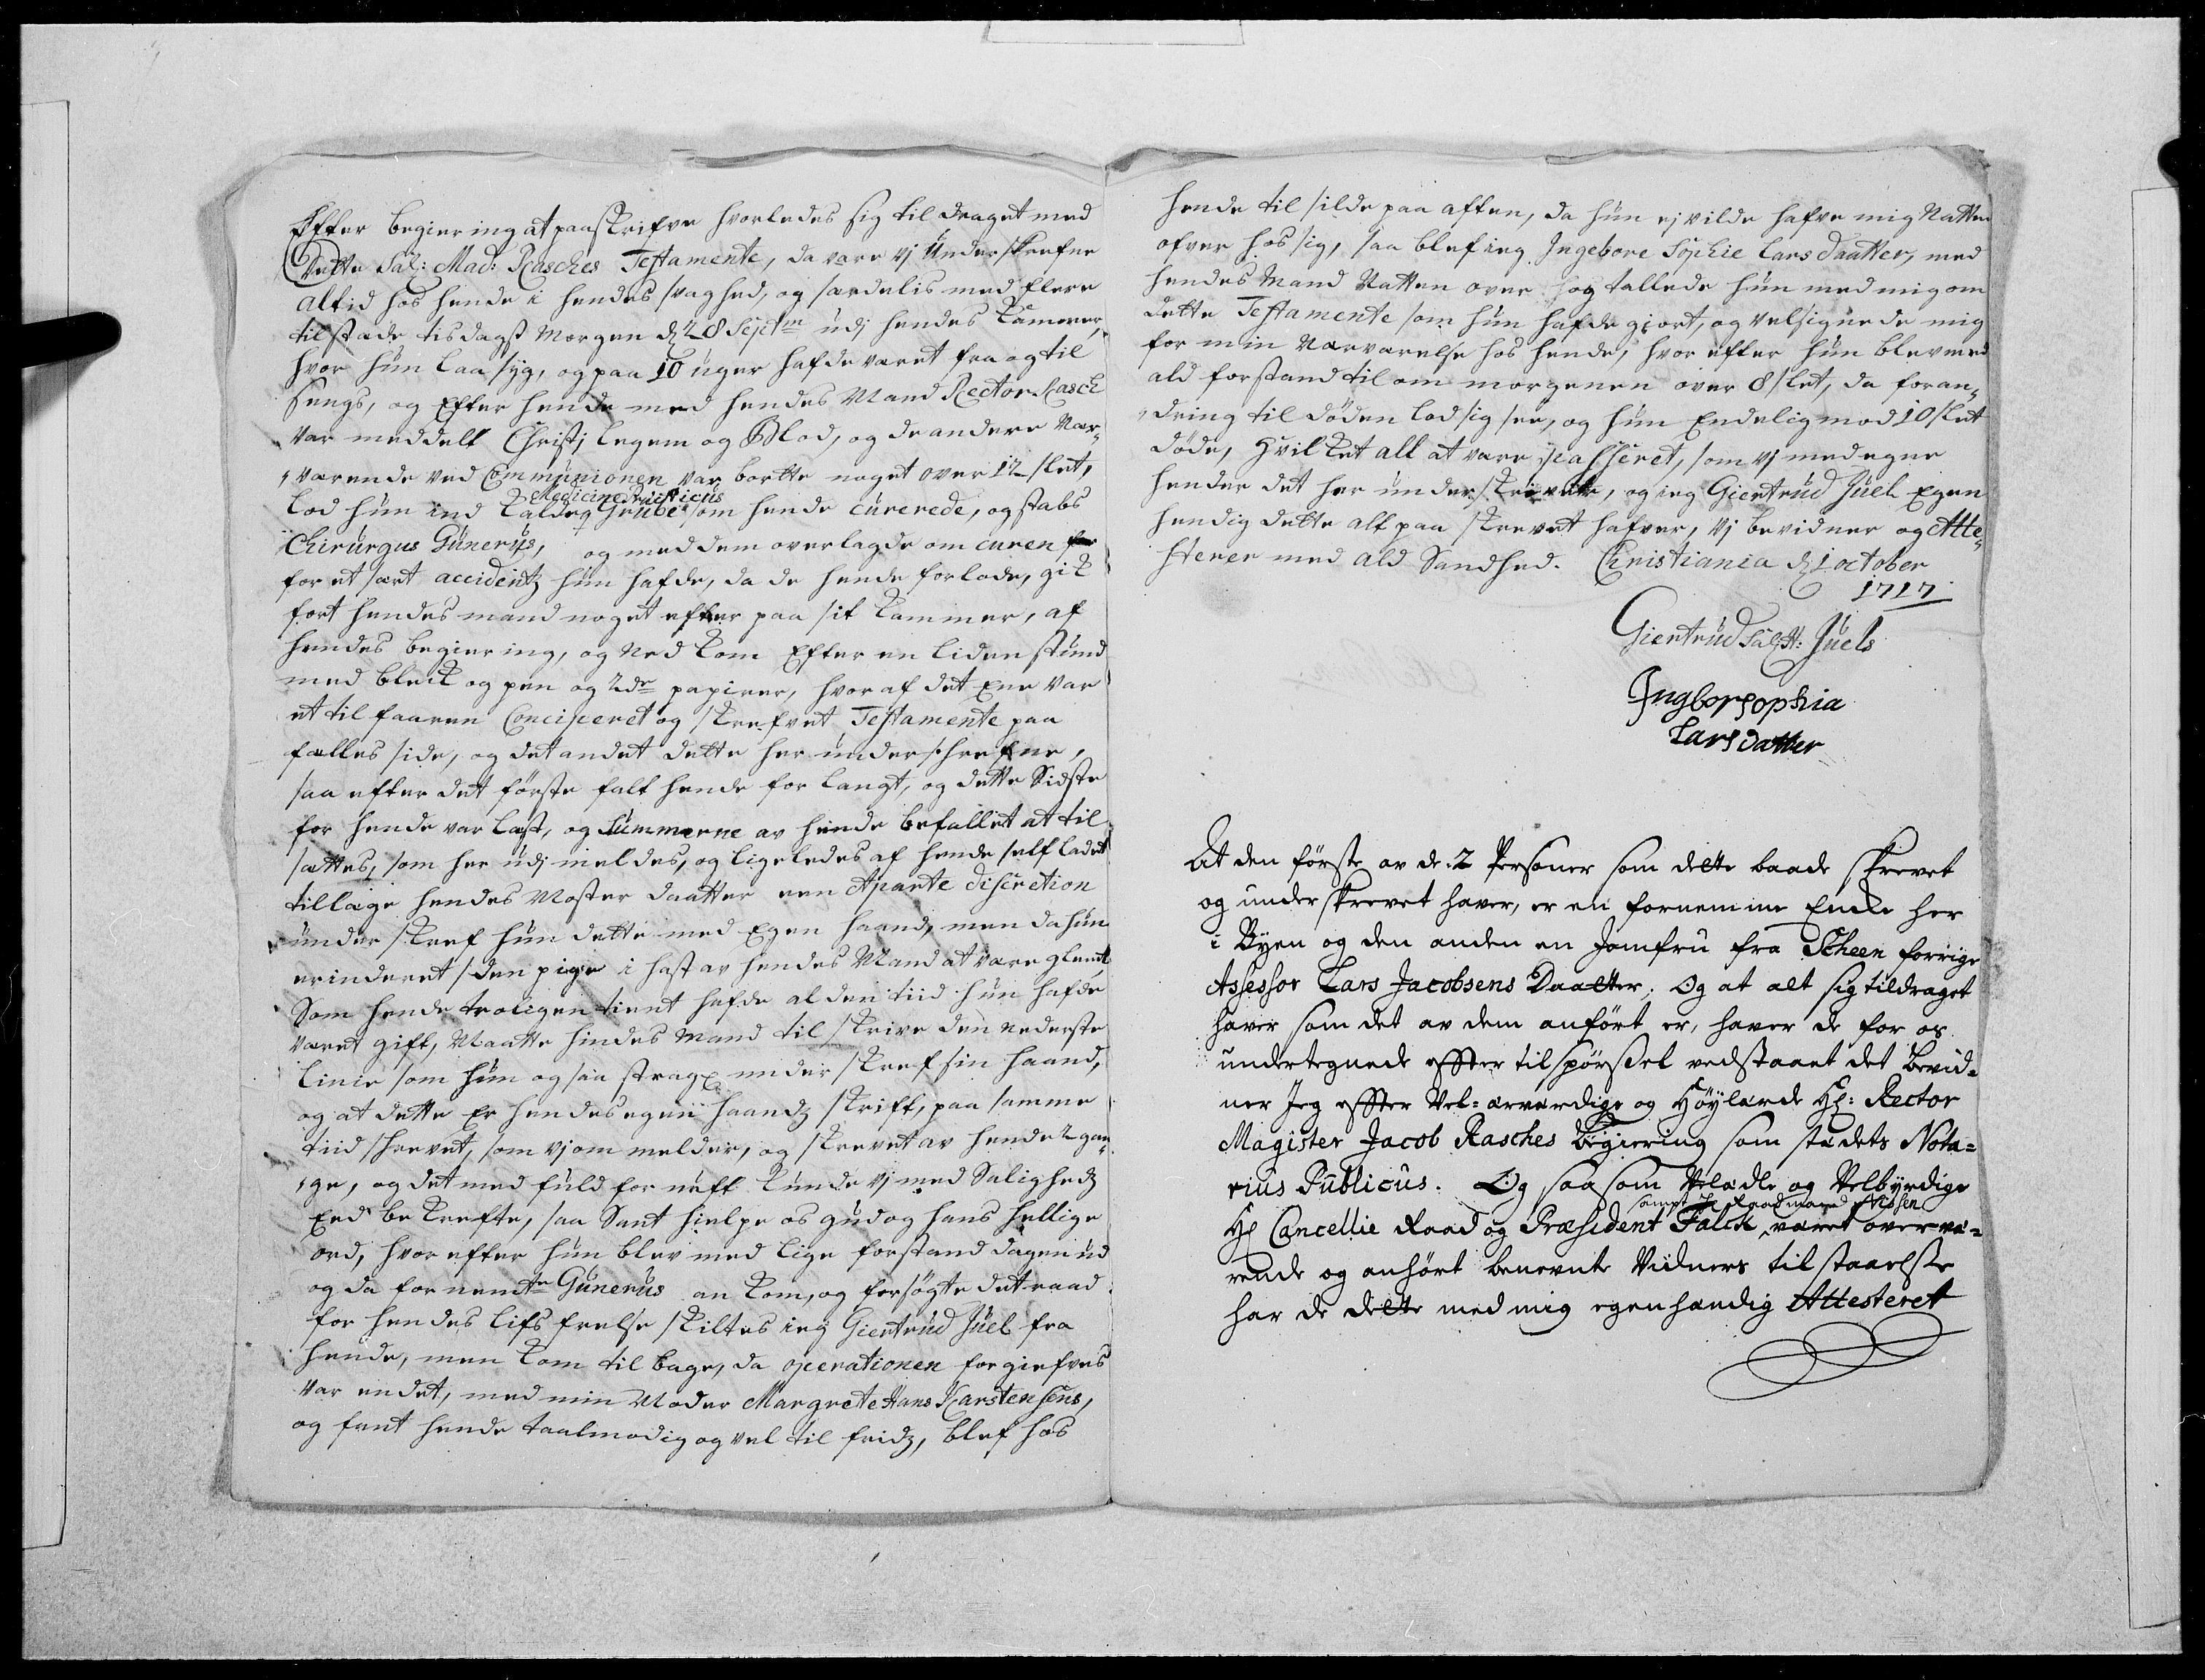 Efter begiering at paaskrifve hvorledes sig til draget med
Dette Sal: Mad: Rasches Testamente, da vare vj Underskrefne
altid hos hende i hendes svaghed, og særdelis med flere
tilstæde tisdagst Morgen d 28 Septm udj hendes Kammer,
hvor hun laa syg, og paa 10 uger hafde været fra og til
sengs, og Efter hende med hendes Mand Rector Rasch
var meddelt Christj legem og Blod, og de andere Nær¬
værende ved Communionen var bortte noget over 12 slet,
Medicine Practicus
lod hun ind kalde Grube som hende curerede, og stabs
Chirurgus Gunerus, og med dem overlagde om curen
for et sært accidentz hun hafde, da de hende forlode, gik
fort hendes mand noget efter paa sit kammer, af
hendes begiering, og Ned kom Efter en liden stund
med bleck og pen og 2de papirer, hvoraf det Ene var
et til faaren Concipieret og skrefvet Testamente paa
fælles side, og det andet dette her underschrefne,
saa efter det første falt hende for langt, og dette Sidste
for hende var læst, og Summerne av hende befallet at til
sættes, som her udj meldes, og ligeledes af hende self ladet
tillæge hendes Moster daatter een Aparte discretion
under skref hun dette med Egen haand, men da hun
erinderet den pige i hast av hendes Mand at være glemt,
Som hende troligen tient hafde al den tiid hun hafde
Været gift, Maatte hindes Mand til skrive den nederste
linie som hun og saa strax under skref sin haand,
og at dette Er hendes egen haandz skrift, paa samme
tiid skrevet, som vj om melder, og skrevet av hende 2 gan¬
ge, og det med fuld for nuft kunde vj med Salighedz
Eed be krefte, saa Sant hielpe os gud og hans hellige
ord, hvor efter hun blev med lige forstand dagen ud
og da for nemte Gunerus an kom, og forsøgte det raad
for hendes lifs frelse skiltes ieg Giertrud Juel fra
hende, men kom til bage, da operationen forgiefves
Var endet, med min Moder Margrete Hans Karstensens,
og fant hende taalmodig og vel til fridz, blef hos
hende til silde paa aften, da hun ej vilde hafve mig Natten
ofver hos sig, saa blef ieg Ingebore Sophie Lars daatter, med
hendes Mand Natten over hog tallede hun med mig om
dette Testamente som hun hafde giort, og velsignede mig
for min Nærværelse hos hende, hvor efter hun blev med
ald forstand til om morgenen over 8 slet, da foran¬
dring til døden lod sig see, og hun Endelig mod 10 slet
døde, Hvilket alt at være passeret, som vj med egne
hender det her under skrevete, og ieg Giertrud Juel Egen
hendig dette alt paa skrevet hafver, vj bevidner og Atte¬
sterer med ald Sandhed. Christiania d 1 october
1717
Giertrud Sal H: Juels
Ingborsophia
Larsdatter
At den første av de 2 Personer som dette baade skrevet
og underskrevet haver, er en fornemme Encke her
i Byen og den anden en Jomfru fra Scheen forrige
Assessor Lars Jacobsens Daatter. Og at alt sig tildraget
haver som det av dem anført er, haver de for os
undertegnede effter tilspørsel vedstaaet det Bevid=
ner Jeg effter Vel=ærværdige og Høylærde Hr: Rector
Magister Jacob Rasches Begiering som stædets Nota=
rius Publicus. Og saasom Velædle og Velbyrdige
sampt Hr Raadmand Nissen
Hr Cancellie Raad og Præsident Falch været overvæ=
rende og anhørt benevnte Vidners tilstaaelse
har de dette med mig egenhændig Attesteret